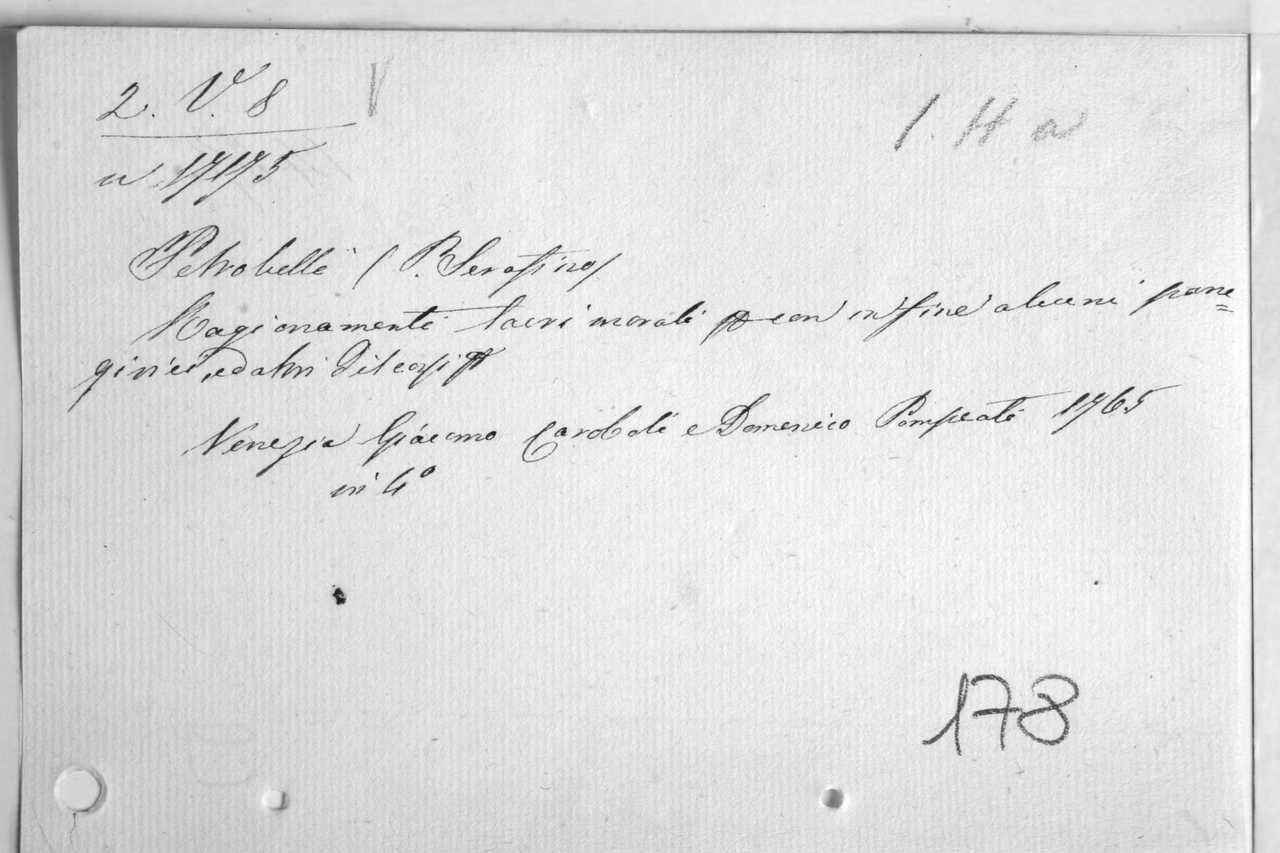 2. V. 8 V
1. H a
n 17175
Petrobelli (P. Serafino)
Ragionamenti sacri morali con in fine alcuni pane=
girici, ed altri discorsi
Venezia Giacomo Caroboli e Domenico Pompeati 1765
in 4°
178